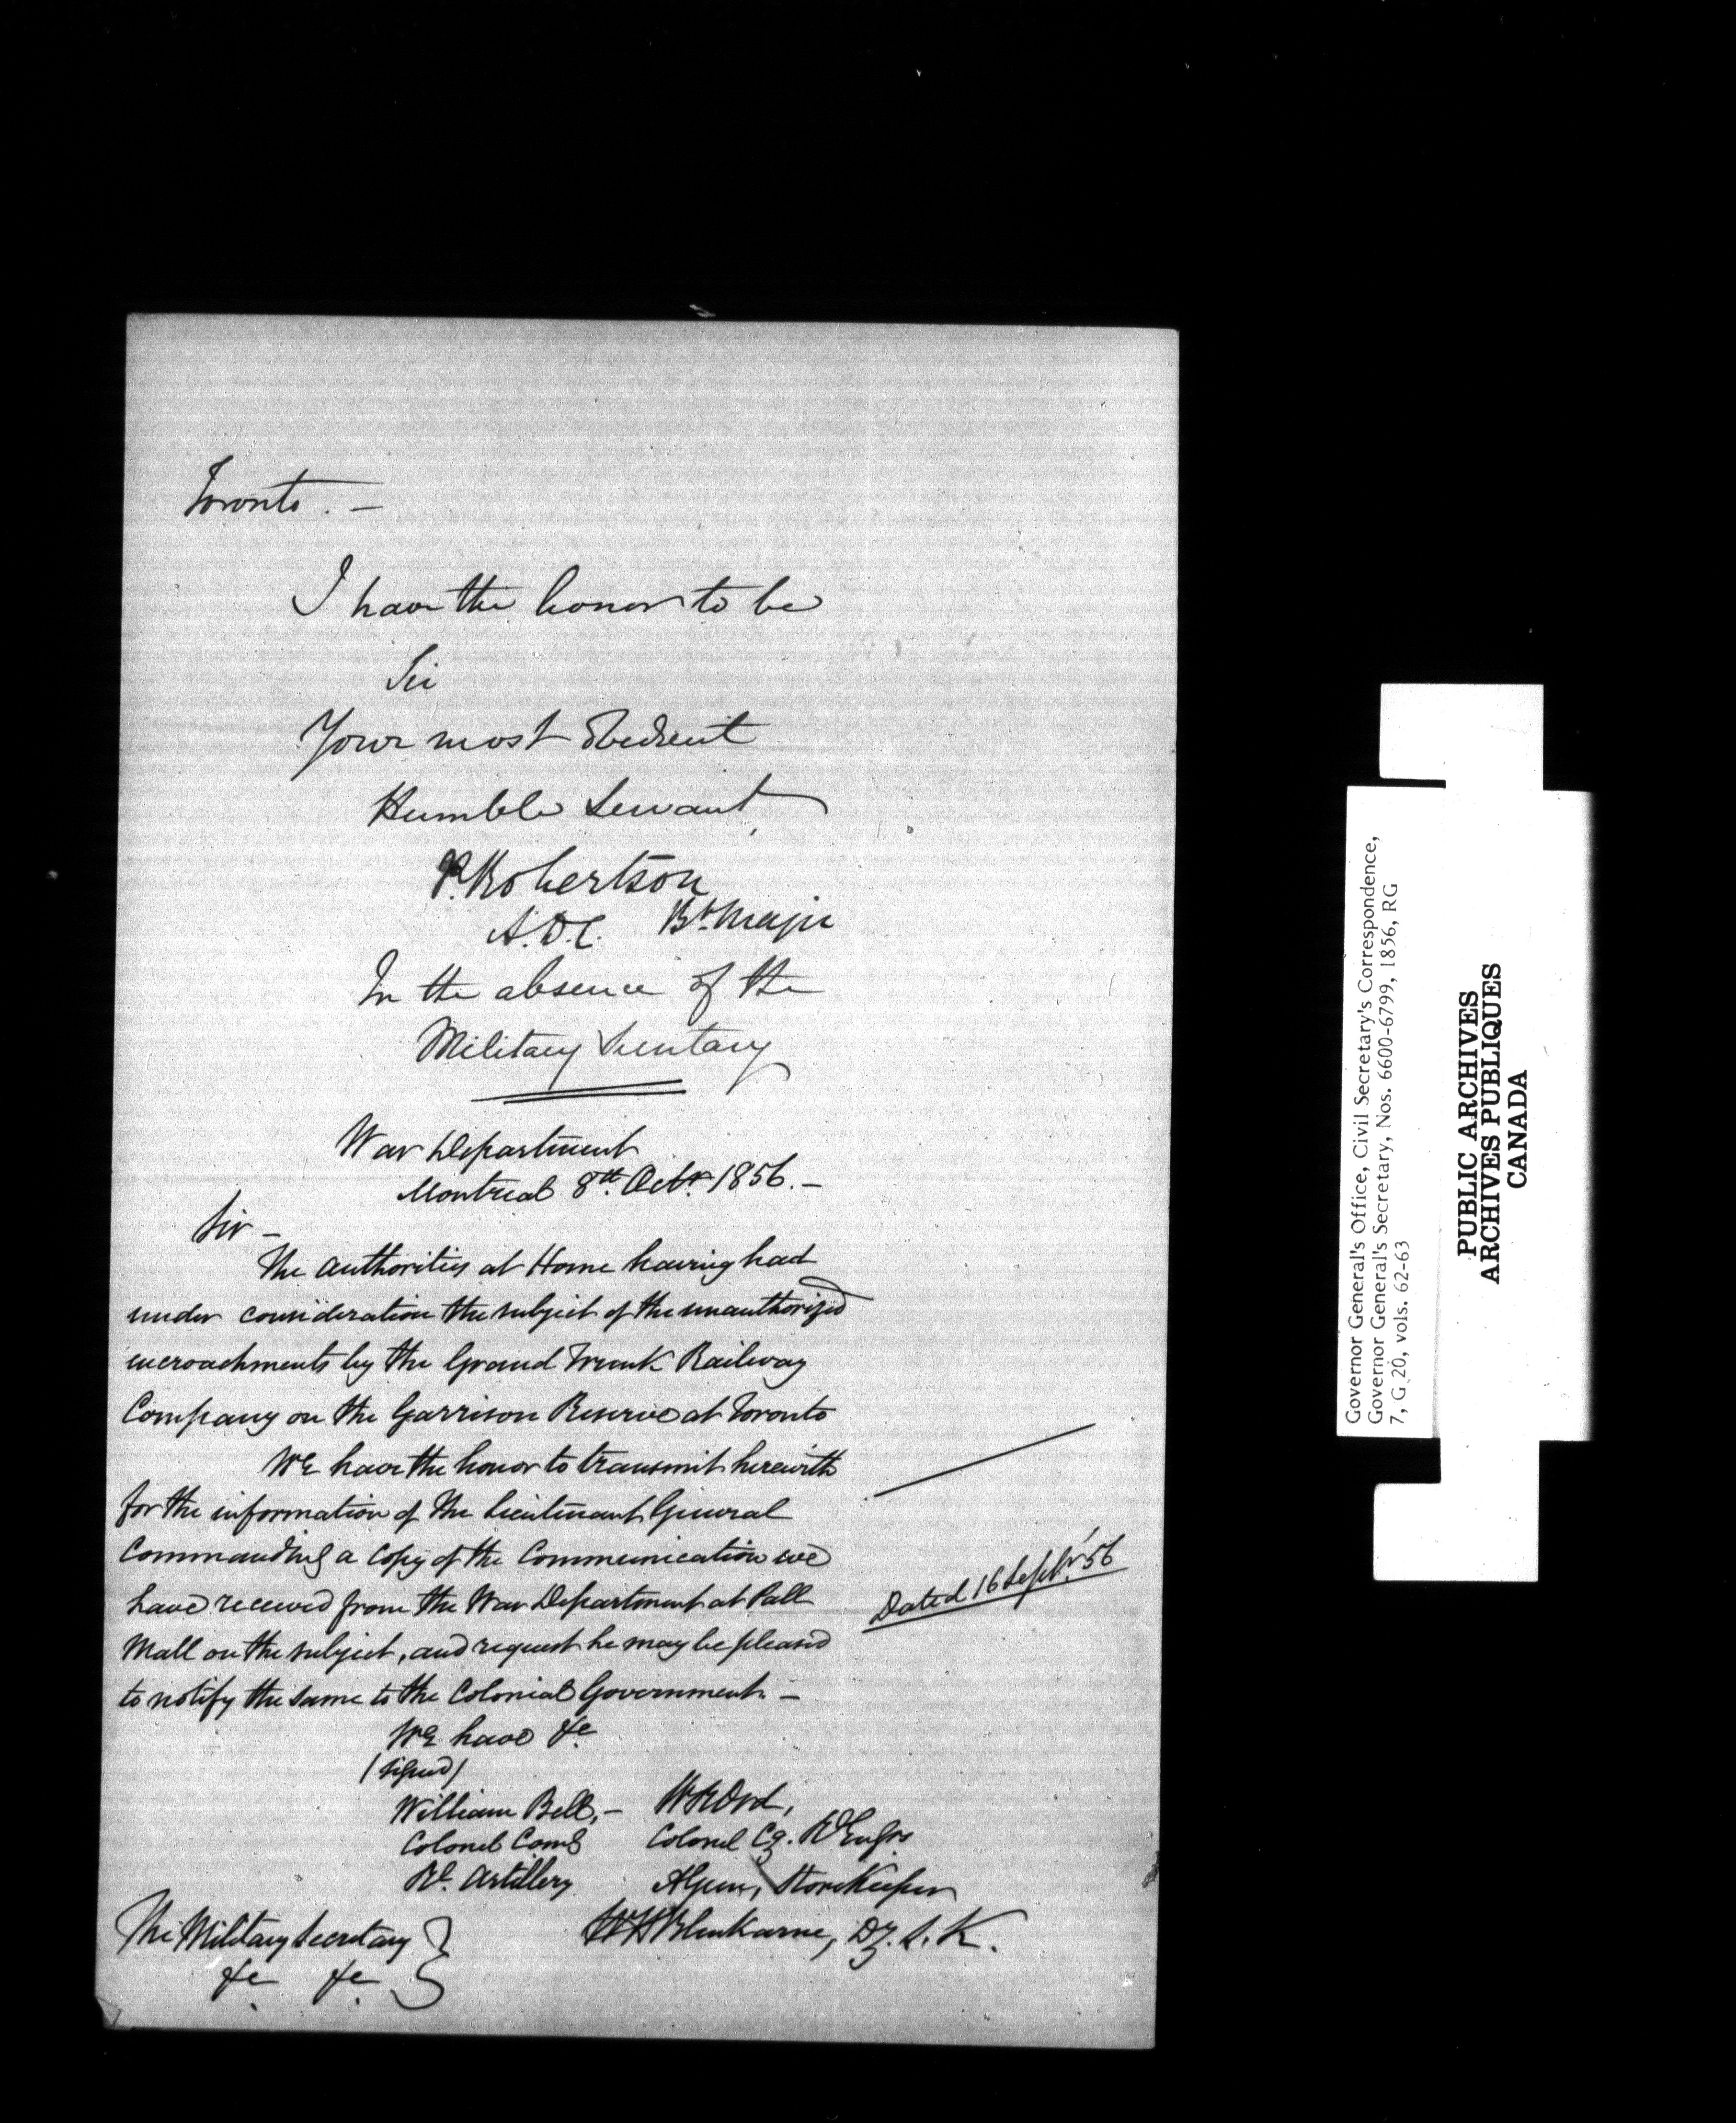 Toronto. —
I have the honor to be
Sir
Your most Obedient
Humble Servant,
P. Robertson
A.D.C. Bt. Major
In the absence of the
Military Secretary
War Department
Montreal 8th. Octr. 1856. —
Sir —
The Authorities at Home having had
under consideration the subject of the unauthorized
encroachments by the Grand Trunk Railway
Company on the Garrison Reserve at Toronto
We have the honor to transmit herewith
for the information of the Lieutenant General
Commanding a copy of the Communication we
have received from the War Department at Pall
Dated 16 Septr. '56
Mall on the subject, and request he may be pleased
to notify the same to the Colonial Government. —
We have &c
(signed)
William Bell, — Ord,
Colonel Comg Colonel Cg. Rl Engrs
Rl. Artillery StoreKeeper
The Military Secretary Blenkarne, Dy. S. K.
&c &c
Governor General's Office, Civil Secretary's Correspondence,
Governor General's Secretary, Nos. 6600-6799, 1856, RG
7, G 20, vols. 62-63
PUBLIC ARCHIVES
ARCHIVES PUBLIQUES
CANADA